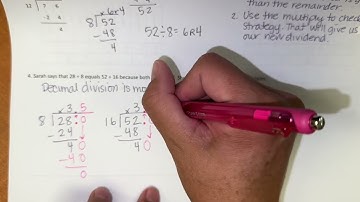 12 7 6
x 6 r 4
8 52
- 48
4
52
52 ÷ 8 = 6R4
than the remainder.
2. Use the multiply to check
strategy. That will give us
our new dividend.
4. Sarah says that 28 ÷ 8 equals 52 ÷ 16 because both
Decimal division is mo
x 3.5
8 28.0
- 24
4 0
- 4 0
0
x 3
16 52.
- 48
4 0